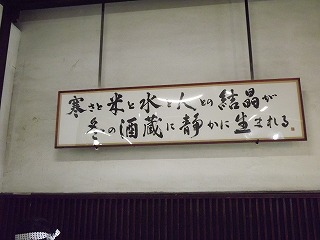 寒さと米と水と人との結晶が
冬の酒蔵に静かに生まれる